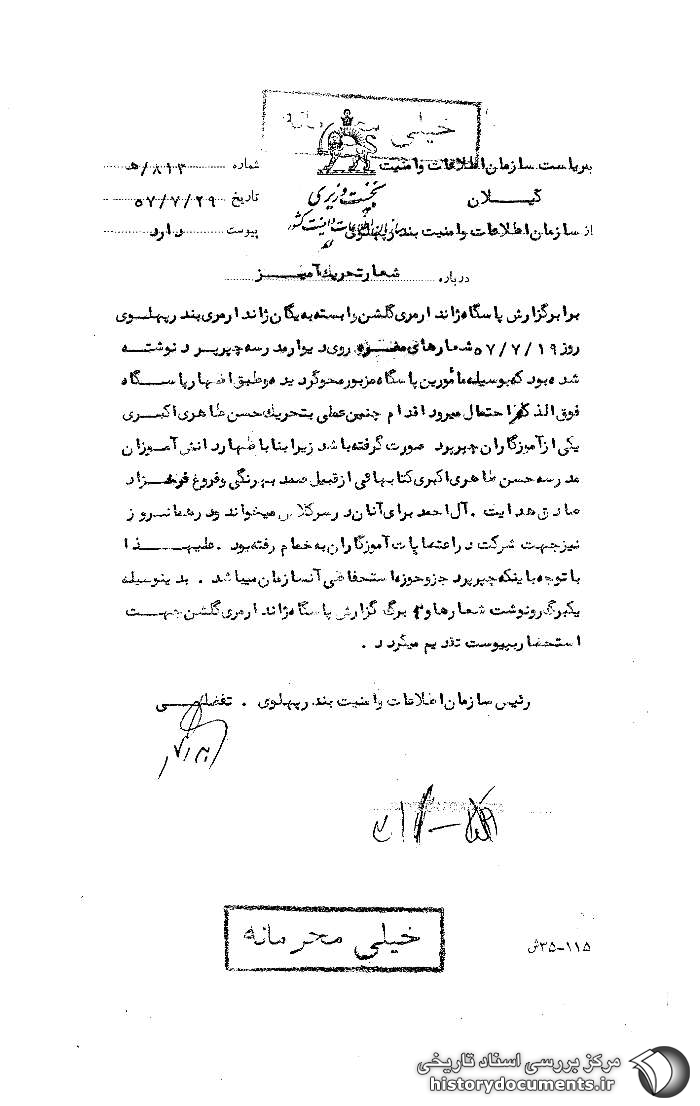 خیلی محرمانه
بریاست سازمان اطلاعات وامنیت
شماره ۸۱۳/هـ
گیلان
نخست وزیری
تاریخ ۵۷/۷/۲۹
سازمان اطلاعات و امنیت کشور
از سازمان اطلاعات وامنیت بندرپهلوی
پیوست دارد
درباره شعار تحریک آمیز
برابرگزارش پاسگاه ژاندارمری گلشن وابسته به یگان ژاندارمری بندرپهلوی
روز ۵۷/۷/۱۹ شعارهای مضره روی دیوارمدرسه چپرپرد نوشته
شده بود که بوسیله مأمورین پاسگاه مزبورمحوگردیده وطبق اظهارپاسگاه
فوق الذکر احتمال میرود اقدام چنین عملی بتحریک حسن طاهری اکبری
یکی ازآموزگاران چپرپرد صورت گرفته باشد زیرا بنا باظهاردانش آموزان
مدرسه حسن طاهری اکبری کتابهائی ازقبیل صمد بهرنگی وفروغ فرخزاد
صادق هدایت . آل احمد برای آنان درسرکلاس میخواند ودرهمانروز
نیزجهت شرکت دراعتصابات آموزگاران به خمام رفته بود . علیهذا
با توجه باینکه چپرپرد جزوحوزه استحفاظی آنسازمان میباشد . بدینوسیله
یکبرگ رونوشت شعارها و ۳ برگ گزارش پاسگاه ژاندارمری گلشن جهت
استحضارپیوست تقدیم میگردد .
رئیس سازمان اطلاعات وامنیت بندرپهلوی . تفضلی
خیلی محرمانه
۱۱۵-۳۵ش
مرکز بررسی اسناد تاریخی
historydocuments.ir